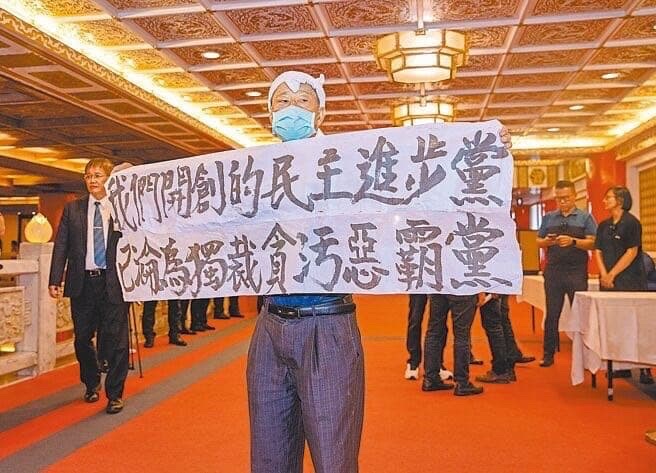 我們開創的民主進步黨
已淪為獨裁貪污惡霸黨